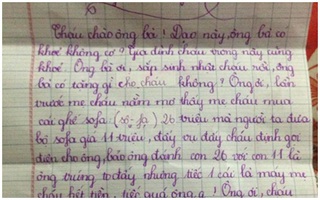 Cháu chào ông bà! Dạo này ông bà có
khoẻ không cơ? Gia đình cháu trong này cũng
khoẻ. Ông bà ơi, sắp sinh nhật cháu rồi, ông
bà có tặng gì cho cháu không? Ông ơi, lần
trước mẹ cháu nằm mơ thấy mẹ cháu mua
cái ghế sofa (sô-fa) 26 triệu mà người ta đưa
bộ sofa giá 11 triệu, đấy vụ đấy cháu định gọi
điện cho ông, bảo ông đánh con 26 với con 11 là
ông trúng to đấy nhưng tiếc 1 cái là máy mẹ
cháu hết tiền, tiếc quá ông ạ! Ông ơi, cháu